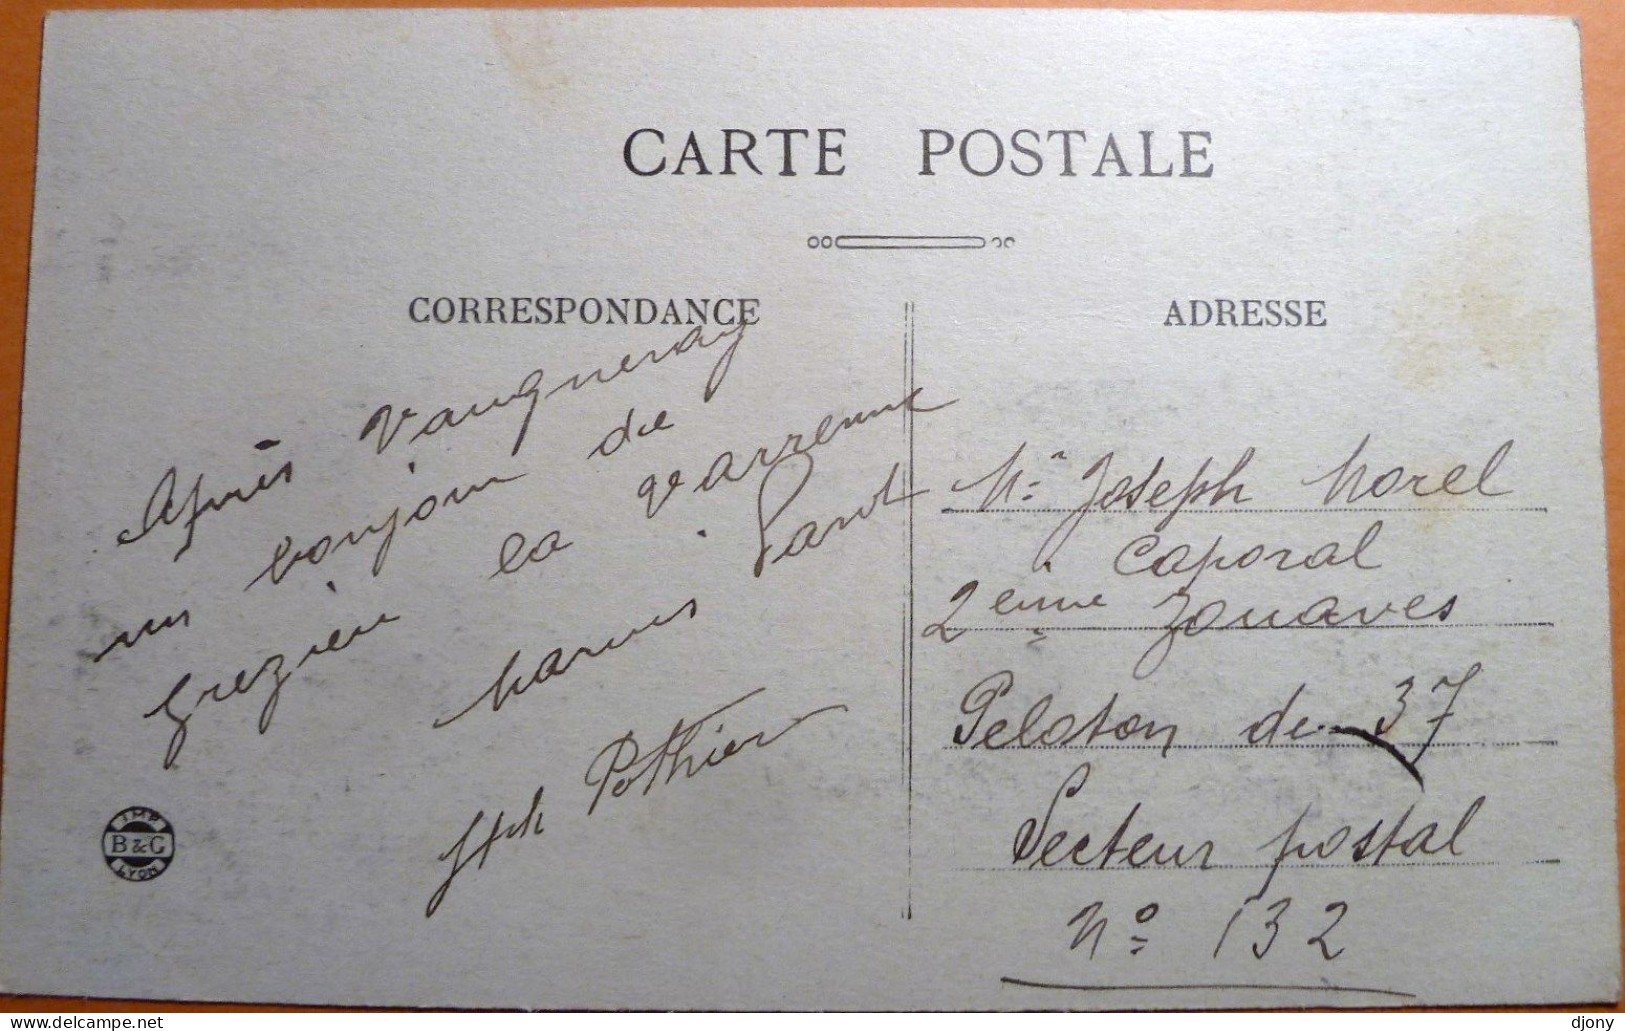 CARTE POSTALE
CORRESPONDANCE
Après Vaugneray
un bonjour de
Grezieu la Varenne
Marius
Jph Pothier
IMP
B & G
LYON
ADRESSE
Mr Joseph Morel
Caporal
2eme Zouaves
Peloton de 37
Secteur postal
No 132
djony